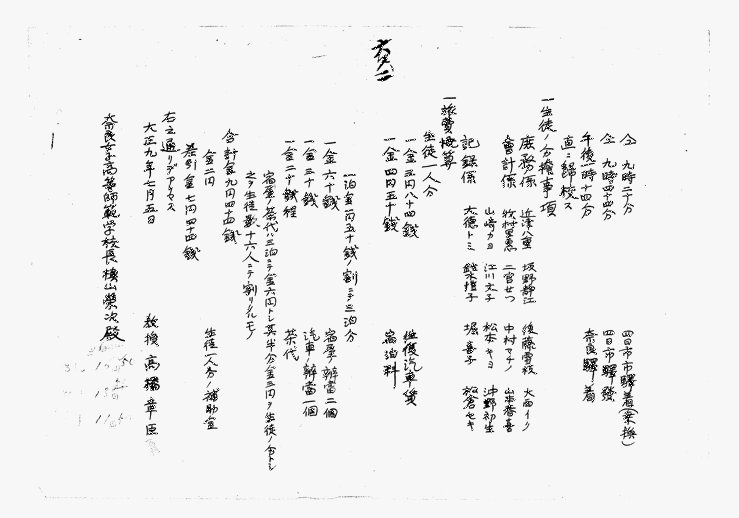 仝 九時二十分 四日市市驛着(乘換)
仝 九時四十四分 四日市驛發
午後一時十四分 奈良驛着
直ニ歸校ス
一生徒ノ分擔事項
庶務係 近澤八重 坂野靜江 後藤雪枝 大西イク
會計係 牧村里惠 二宮せつ 中村マチノ 山本春喜
記録係 山崎カヨ 江川文子 松本キヨ 沖野初生
大德トミ 鈴木禮子 堀喜子 松倉セキ
一旅費概算
生徒一人分
一金三円八十四錢 往復汽車賃
一金四円五十錢 宿泊料
一泊金一円五十錢ノ割ニテ三泊分
一金六十錢 宿屋ノ辨當二個
一金三十錢 汽車ノ辨當一個
一金二十錢程 茶代
宿屋ノ茶代ハ三泊ニテ金六円トシ其半分金三円ヲ生徒ノ分トシ
之ヲ生徒數十六人ニテ割リタルモノ
合計金九円四十四錢
金二円 生徒一人分ノ補助金
差引金七円四十四錢
右之通リデアリマス
大正九年七月五日 教授 高橋章臣
奈良女子高等師範学校長 槇山榮次殿